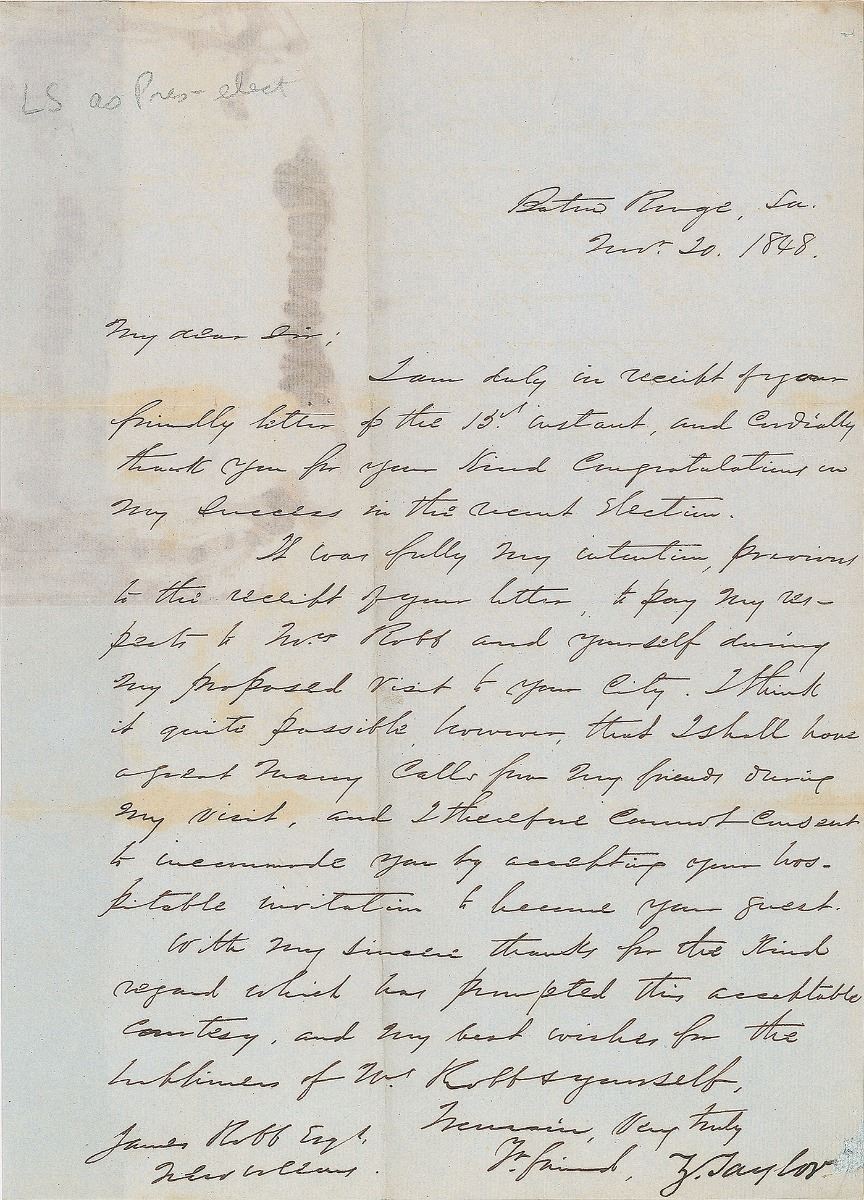 LS as Pres-elect
Baton Rouge, La.
Novr. 20. 1848.
My dear Sir;
I am duly in receipt of your
friendly letter of the 15th instant, and cordially
thank you for your kind congratulations on
my success in the recent Election.
It was fully my intention, previous
to the receipt of your letter, to pay my res-
pects to Mrs Robb and yourself during
my proposed visit to your City. I think
it quite possible, however, that I shall have
a great many calls from my friends during
my visit, and I therefore cannot consent
to incommode you by accepting your hos-
pitable invitation to become your guest.
With my sincere thanks for the kind
regard which has prompted this acceptable
courtesy, and my best wishes for the
of Mrs Robb & yourself,
I remain, Very truly
James Robb Esqr. Yr. friend, Z. Taylor
New Orleans.